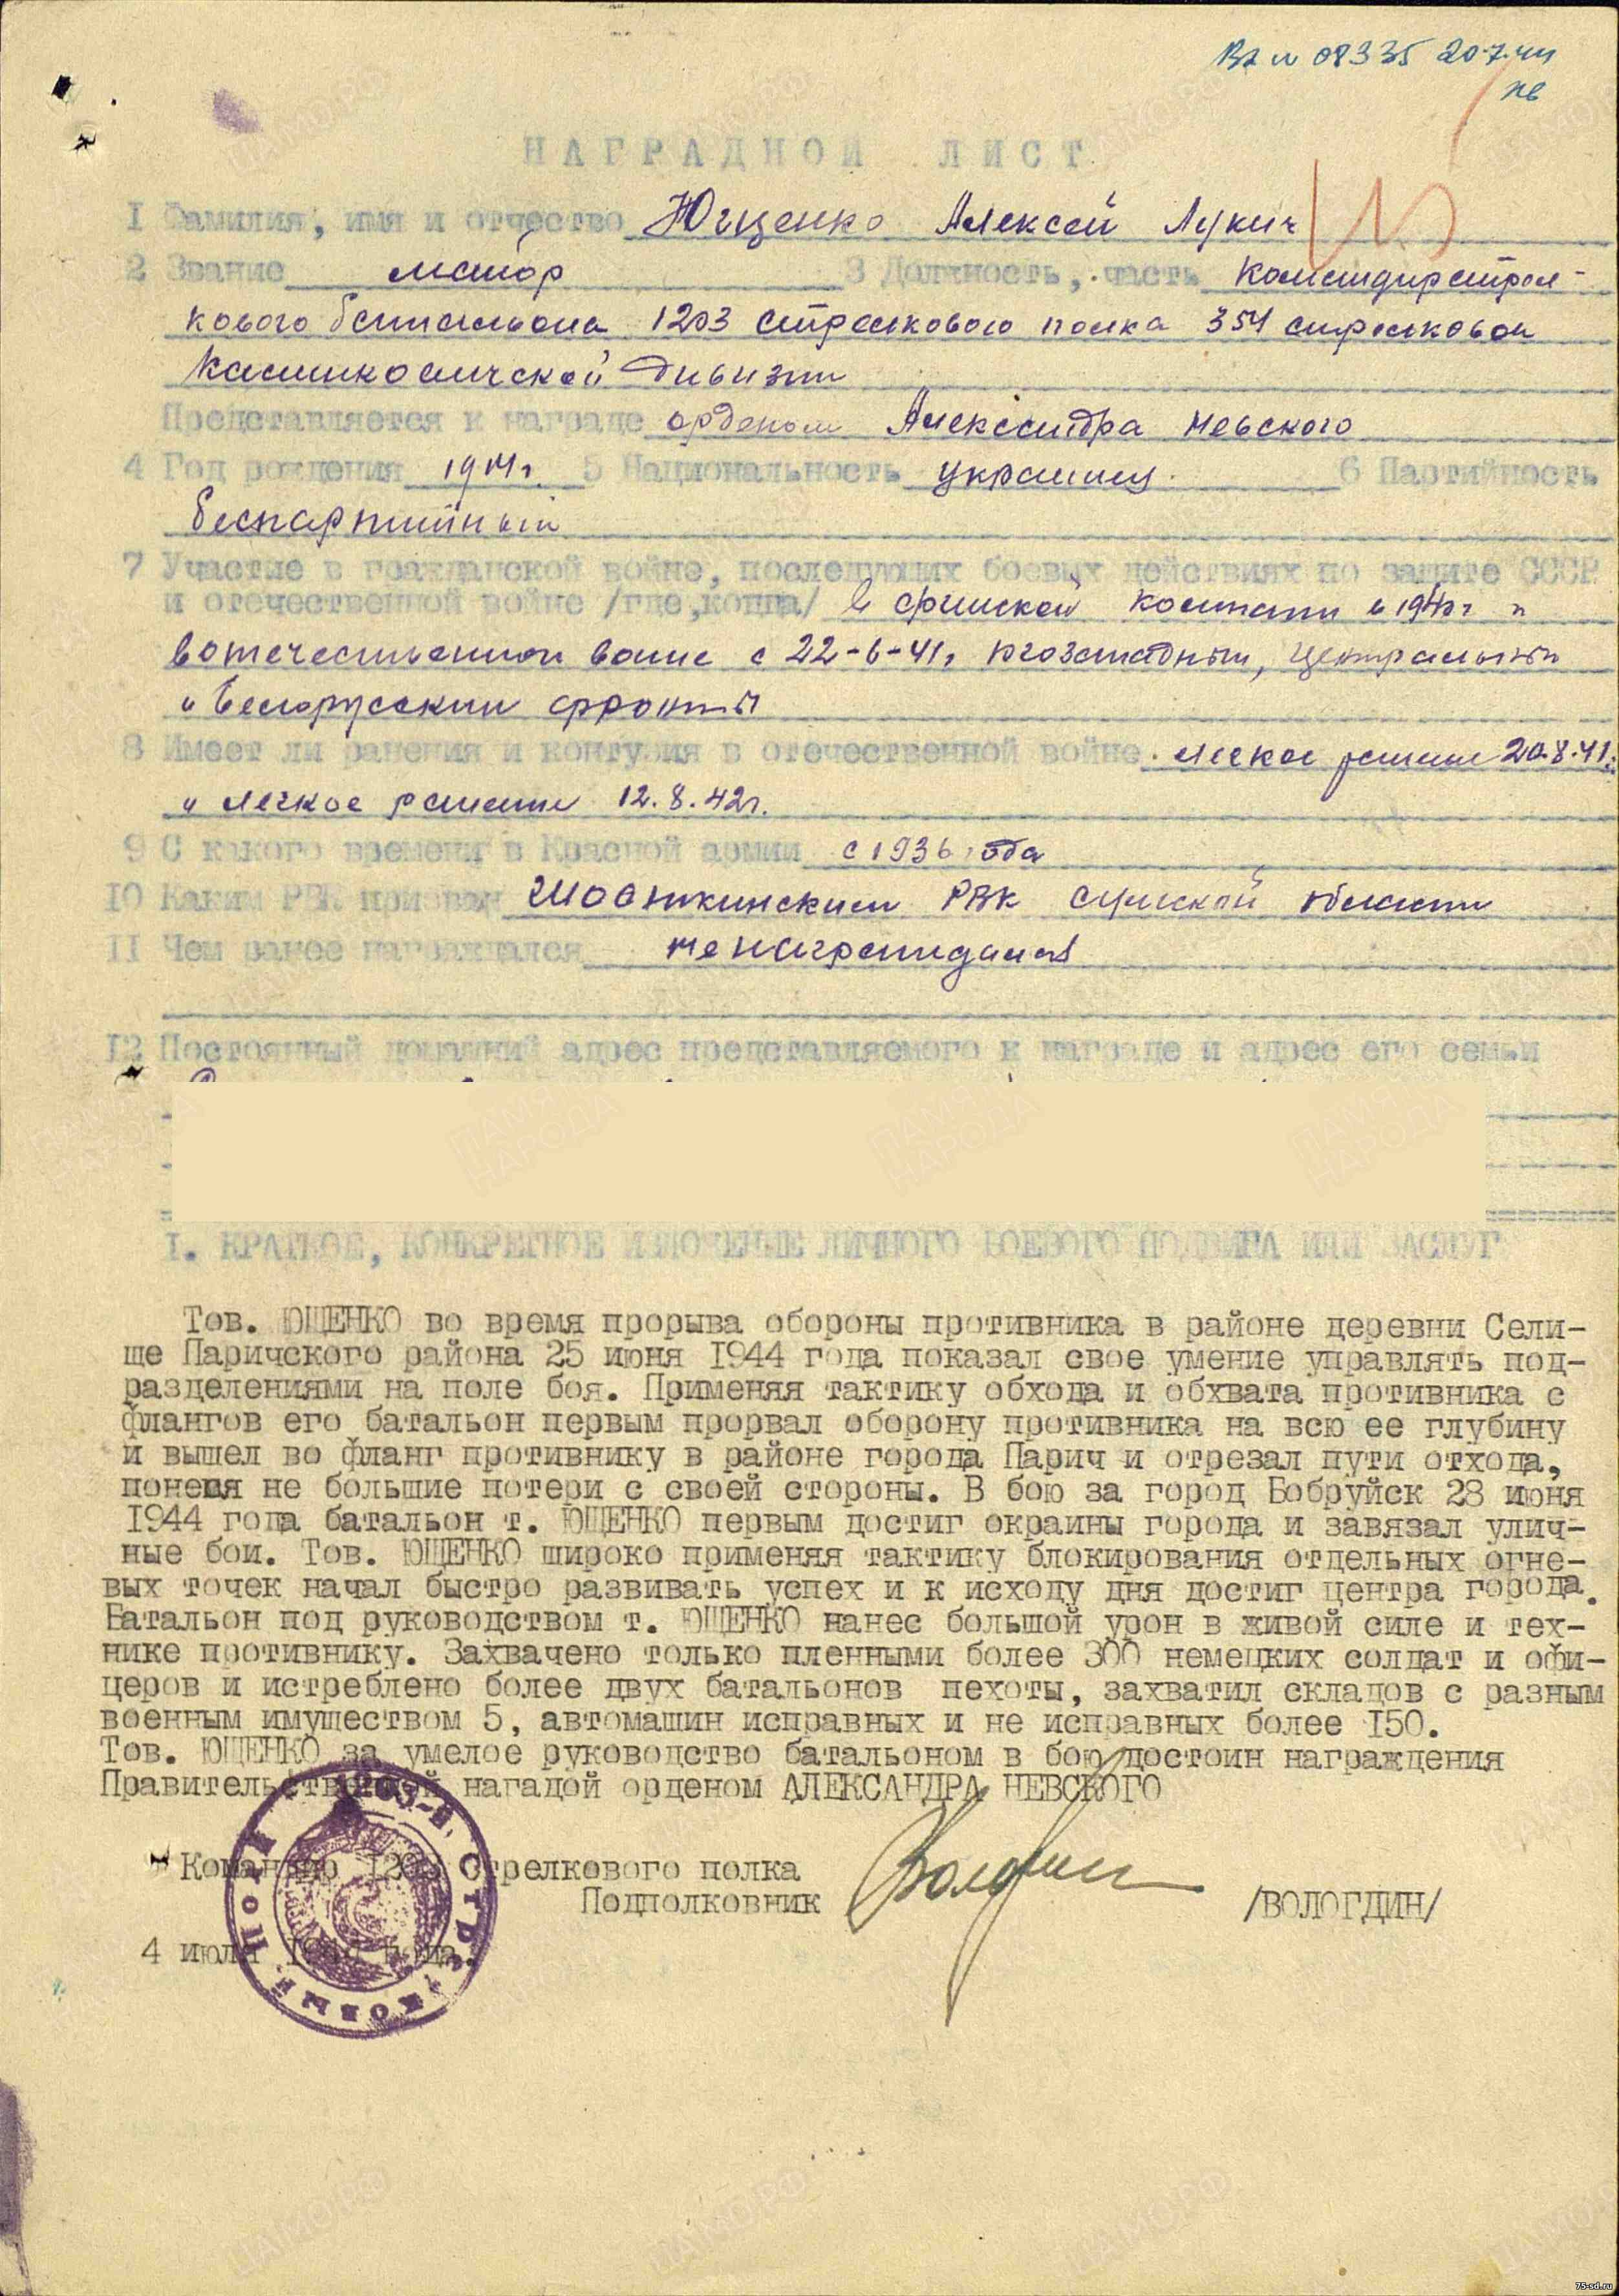 Вх № 08335 20.7.44
НАГРАДНОЙ ЛИСТ
1 Фамилия, имя и отчество Ющенко Алексей Лукич
2 Звание майор 3 Должность, часть командир стрел-
кового батальона 1203 стрелкового полка 354 стрелковой
Калинковичской дивизии
Представляется к награде орденом Александра Невского
4 Год рождения 5 Национальность украинец 6 Партийность
беспартийный
7 Участие в гражданской войне, последующих боевых действиях по защите СССР
и отечественной войне /где, когда/ в финской кампании в 1940г и
в отечественной войне с 22-6-41г югозападный, Центральный
и Белорусский фронты
8 Имеет ли ранения и контузия в отечественной войне легкое ранение 20.8.41г.
и легкое ранение 12.8.42г.
9 С какого времени в Красной армии с 1936 года
10 Каким РВК призван Шосткинским РВК Сумской области
11 Чем ранее награждался не награждался
12 Постоянный домашний адрес представляемого к награде и адрес его семьи
I. КРАТКОЕ, КОНКРЕТНОЕ ИЗЛОЖЕНЫЕ ЛИЧНОГО БОЕВОГО ПОДВИГА ИЛИ ЗАСЛУГ
Тов. ЮЩЕНКО во время прорыва обороны противника в районе деревни Сели-
ще Паричского района 25 июня 1944 года показал свое умение управлять под-
разделениями на поле боя. Применяя тактику обхода и обхвата противника с
флангов его батальон первым прорвал оборону противника на всю ее глубину
и вышел во фланг противнику в районе города Парич и отрезал пути отхода,
понеся не большие потери с своей стороны. В бою за город Бобруйск 28 июня
1944 года батальон т. ЮЩЕНКО первым достиг окраины города и завязал улич-
ные бои. Тов. ЮЩЕНКО широко применяя тактику блокирования отдельных огне-
вых точек начал быстро развивать успех и к исходу дня достиг центра города.
Батальон под руководством т. ЮЩЕНКО нанес большой урон в живой силе и тех-
нике противнику. Захвачено только пленными более 300 немецких солдат и офи-
церов и истреблено более двух батальонов пехоты, захватил складов с разным
военным имуществом 5, автомашин исправных и не исправных более 150.
Тов. ЮЩЕНКО за умелое руководство батальоном в бою достоин награждения
Правительственной нагадой орденом АЛЕКСАНДРА НЕВСКОГО
Командир 1203 стрелкового полка
Подполковник /ВОЛОГДИН/
4 июля 1944 года.
75-sd.ru